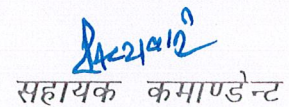 सहायक कमाण्डेन्ट